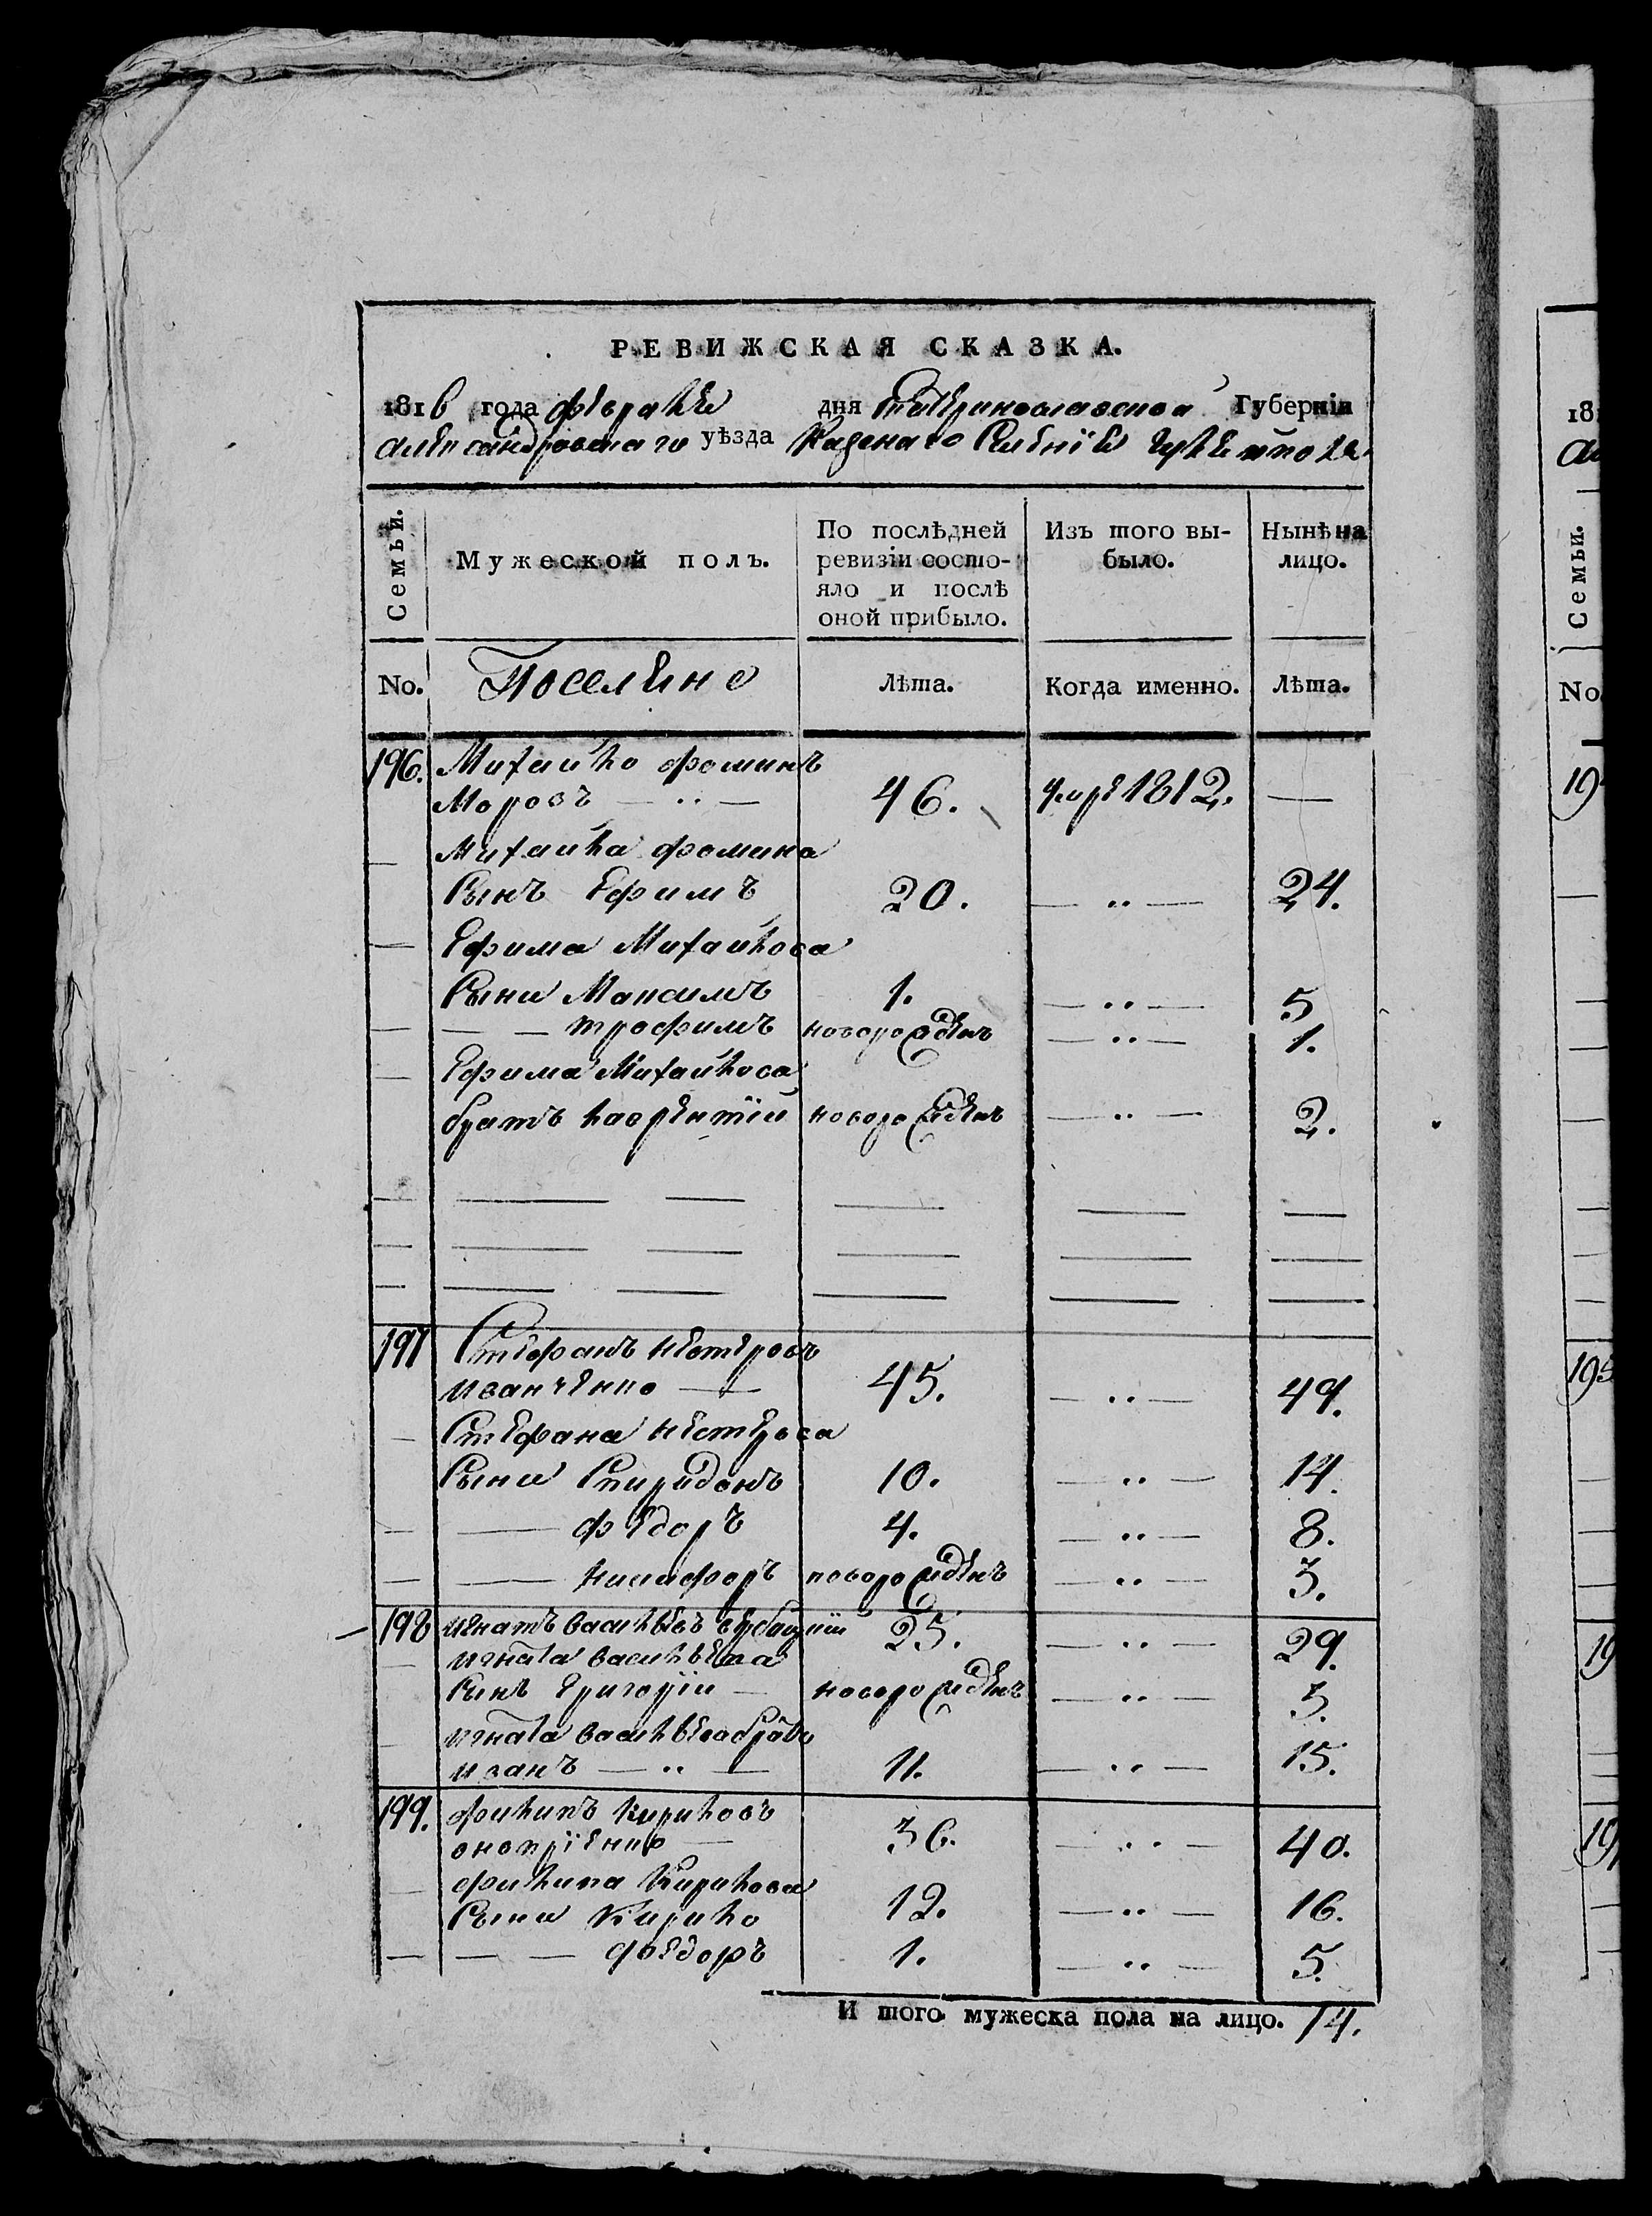 РЕВИЖСКАЯ СКАЗКА.
1816 года февраля дня Екатеринославской Губерніи
Александровского уѣзда Казенаго Селенія Гуляйполя
Семьи.
Мужеской полъ.
По послѣдней ревизіи состо-
яло и послѣ
оной прибыло.
Изъ того вы-
было.
Нынѣ на
лицо.
No. Поселяне Лѣта. Когда именно. Лѣта.
196. Михайло Фоминъ
Моровъ — .. — 46. умре 1812. —
— Михайла Фомина
Сынъ Ефимъ 20. — .. — 24.
— Ефима Михайлова
Сыни Максимъ 1. — .. — 5
— — — трофимъ новорожденъ — .. — 1.
— Ефима Михайлова
братъ лаврентій новорожденъ — .. — 2.
197 Стефанъ нестеровъ
иванченко — 45. — .. — 49.
— Стефана нестерова
Сыни Спиридонъ 10. — .. — 14.
— — федоръ 4. — .. — 8.
— — никифоръ новорожденъ — .. — 3.
198 игнатъ васильевъ вербицкій 25. — .. — 29.
— игната васильева
Сынъ Григорій — новорожденъ — .. — 3.
— игната васильева братъ
иванъ — .. — 11. — .. — 15.
199. филипъ Кириловъ
онопріенко — 36. — .. — 40.
— филипа Кирилова
Сыни Кирило 12. — .. — 16.
— — — федоръ 1. — .. — 5.
И того мужеска пола на лицо. 14.
181
Семьи.
No